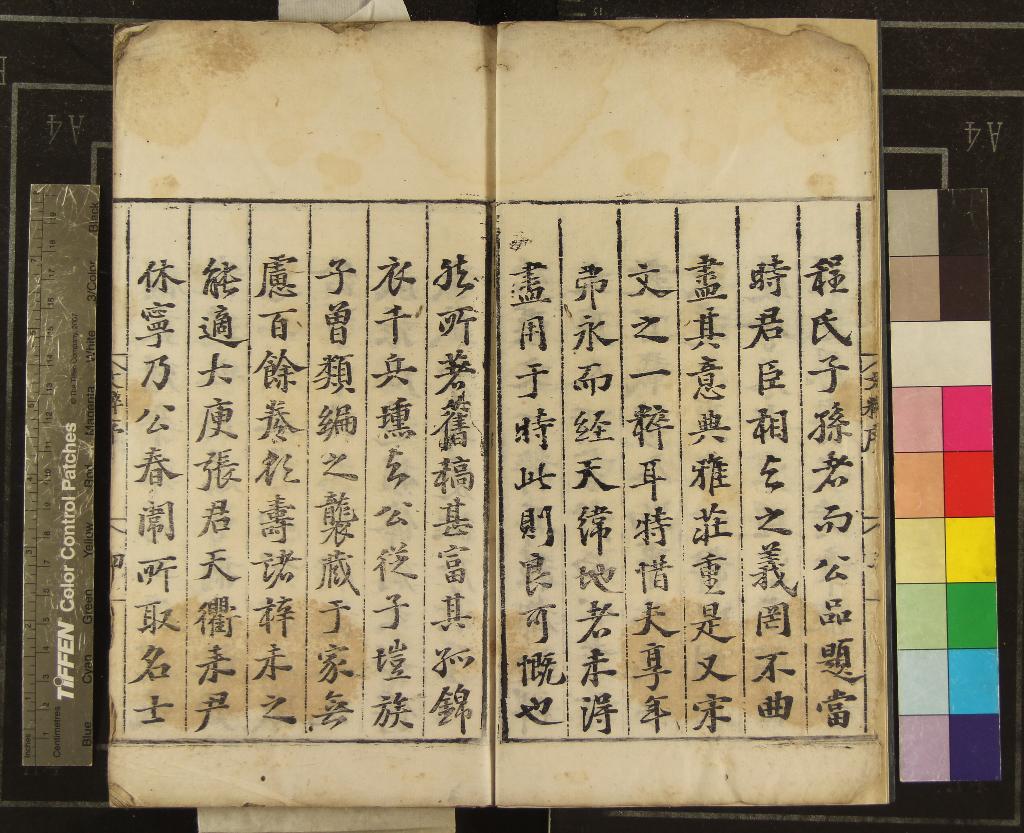 程氏子孫者而公品題當
時君臣相与之義罔不曲
盡其意典雅莊重是又宋
文之一粹耳特惜夫享年
弗永而经天緯地者未得
盡用于時此則良可慨也
然所著舊稿甚富其孤錦
衣千兵壎与公従子塏族
子曾類編之襲蔵于家無
慮百餘卷欲壽諸梓未之
能適大庾張君天衢来尹
休寧乃公春闈所取名士
A4
A4
TIFFEN Color Control Patches
© The Tiffen Company, 2007
Blue Cyan Green Yellow Red Magenta White 3/Color Black
Inches
Centimetres